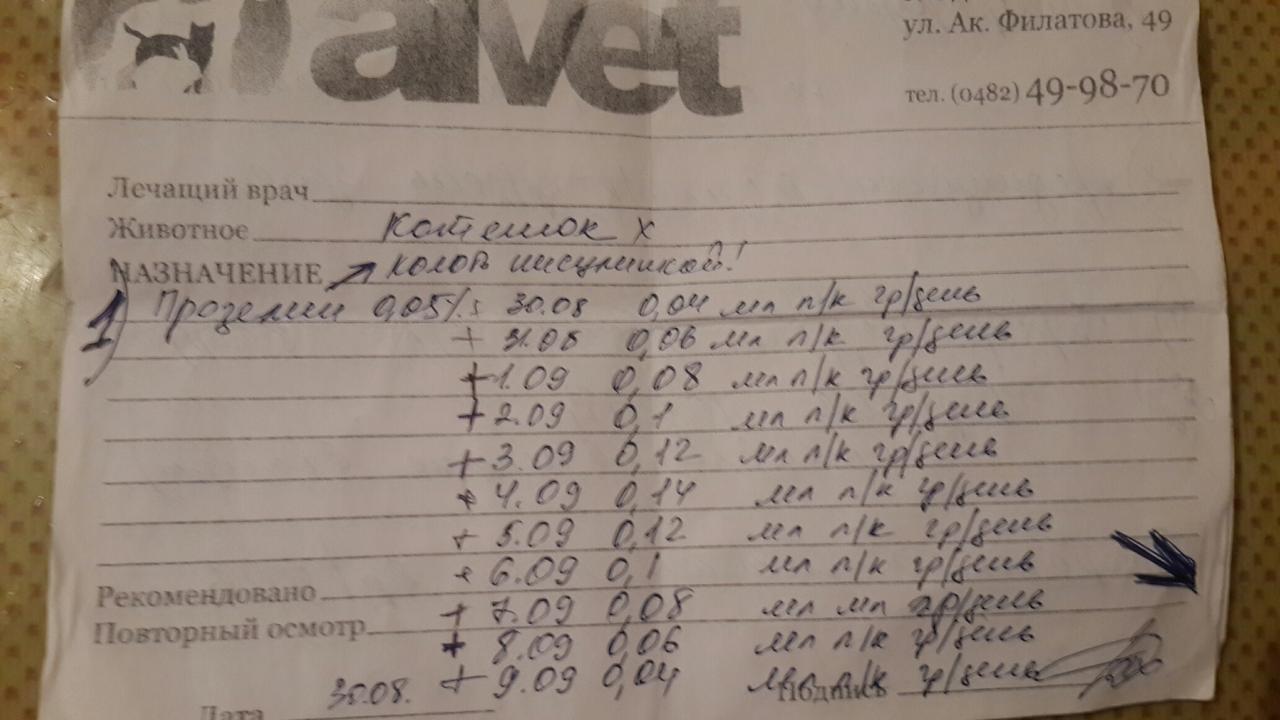 alvet
ул. Ак. Филатова, 49
тел. (0482) 49-98-70
Лечащий врач
Животное Котенок X
НАЗНАЧЕНИЕ колоть инсулинкой!
1) Прозерин 0,05% 30.08 0,04 мл п/к 2р/день
+ 31.08 0,06 мл п/к 2р/день
+ 1.09 0,08 мл п/к 2р/день
+ 2.09 0,1 мл п/к 2р/день
+ 3.09 0,12 мл п/к 2р/день
+ 4.09 0,14 мл п/к 2р/день
+ 5.09 0,12 мл п/к 2р/день
+ 6.09 0,1 мл п/к 2р/день
Рекомендовано
+ 7.09 0,08 мл мл 2р/день
Повторный осмотр
+ 8.09 0,06 мл п/к 2р/день
+ 9.09 0,04 мл п/к 2р/день
Подпись
Дата 30.08.